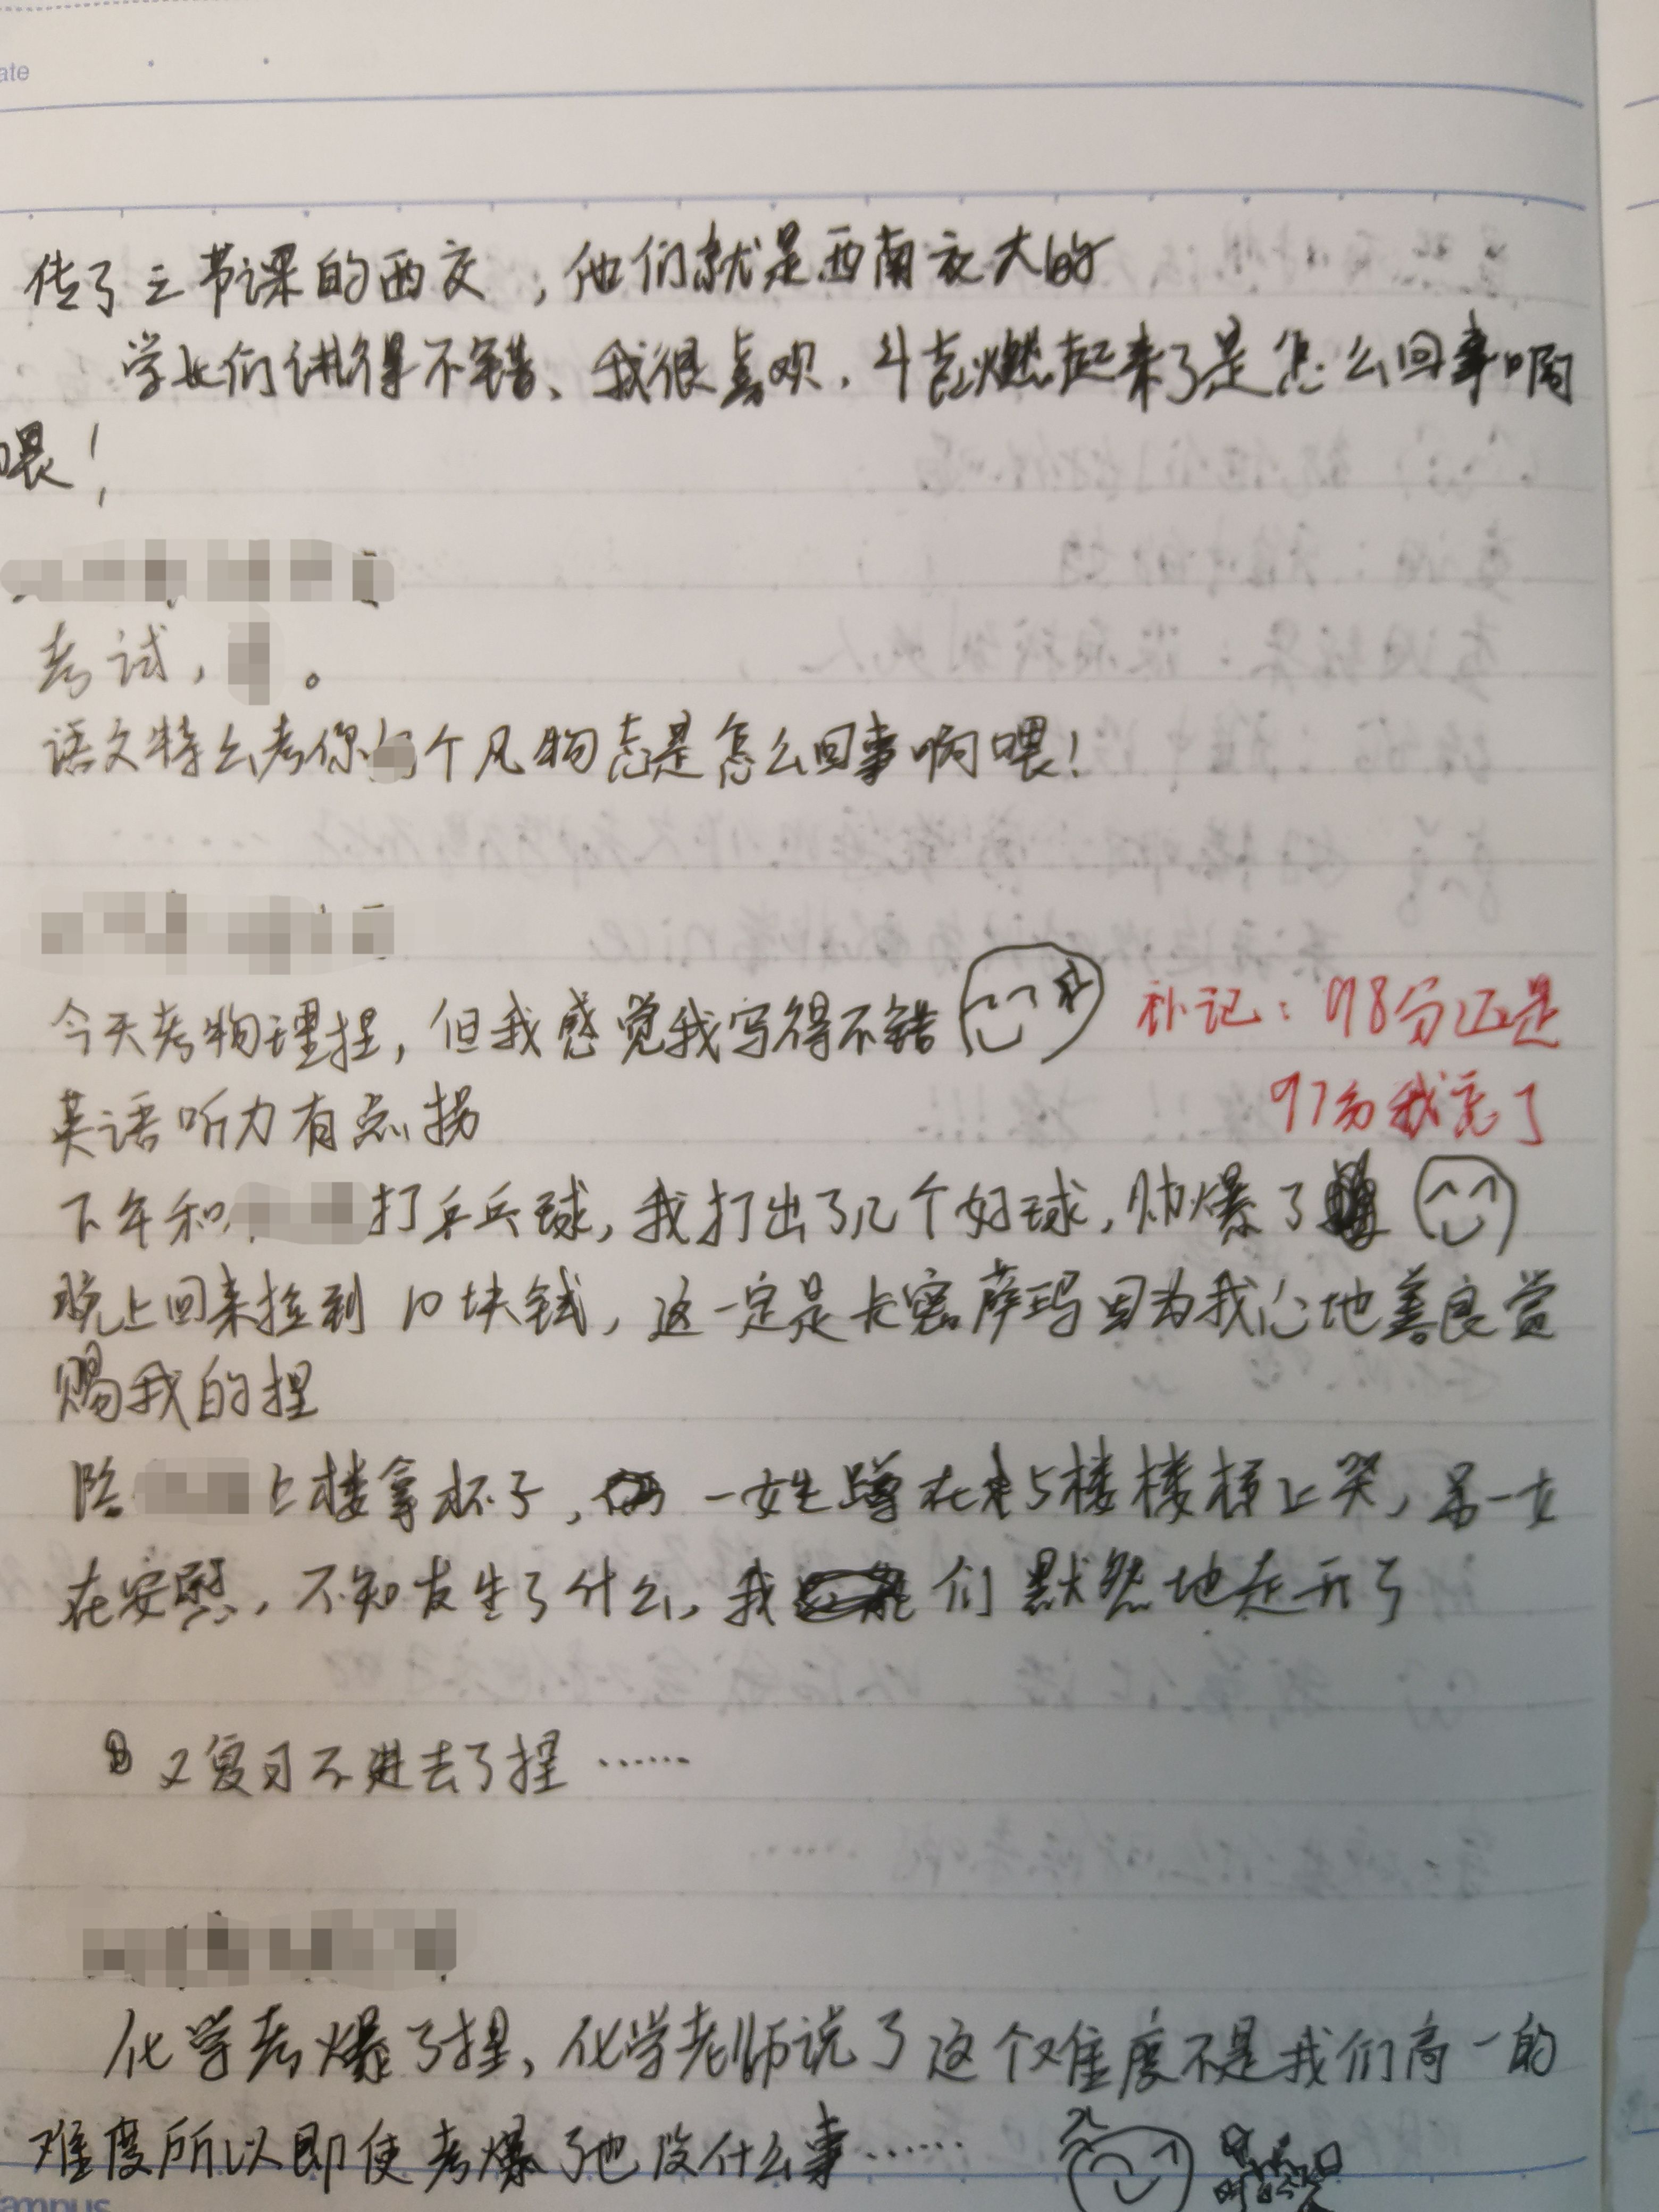 ate
传了三节课的西交，他们就是西南交大的
学长们讲得不错、我很喜欢，斗志燃起来了是怎么回事啊
喂！
考试，。
语文特么考你个凡物志是怎么回事啊喂！
今天考物理捏，但我感觉我写得不错
补记：98分还是
97分我忘了
英语听力有点拐
下午和打乒乓球，我打出了几个好球，帅爆了
晚上回来捡到10块钱，这一定是长宽萨玛因为我心地善良赏
赐我的捏
陪上楼拿杯子，一女生蹲在5楼楼梯上哭，另一女
在安慰，不知发生了什么，我们默然地走开了
又复习不进去了捏……
化学考爆了捏，化学老师说了这个难度不是我们高一的
难度所以即使考爆了也没什么事……
ampus